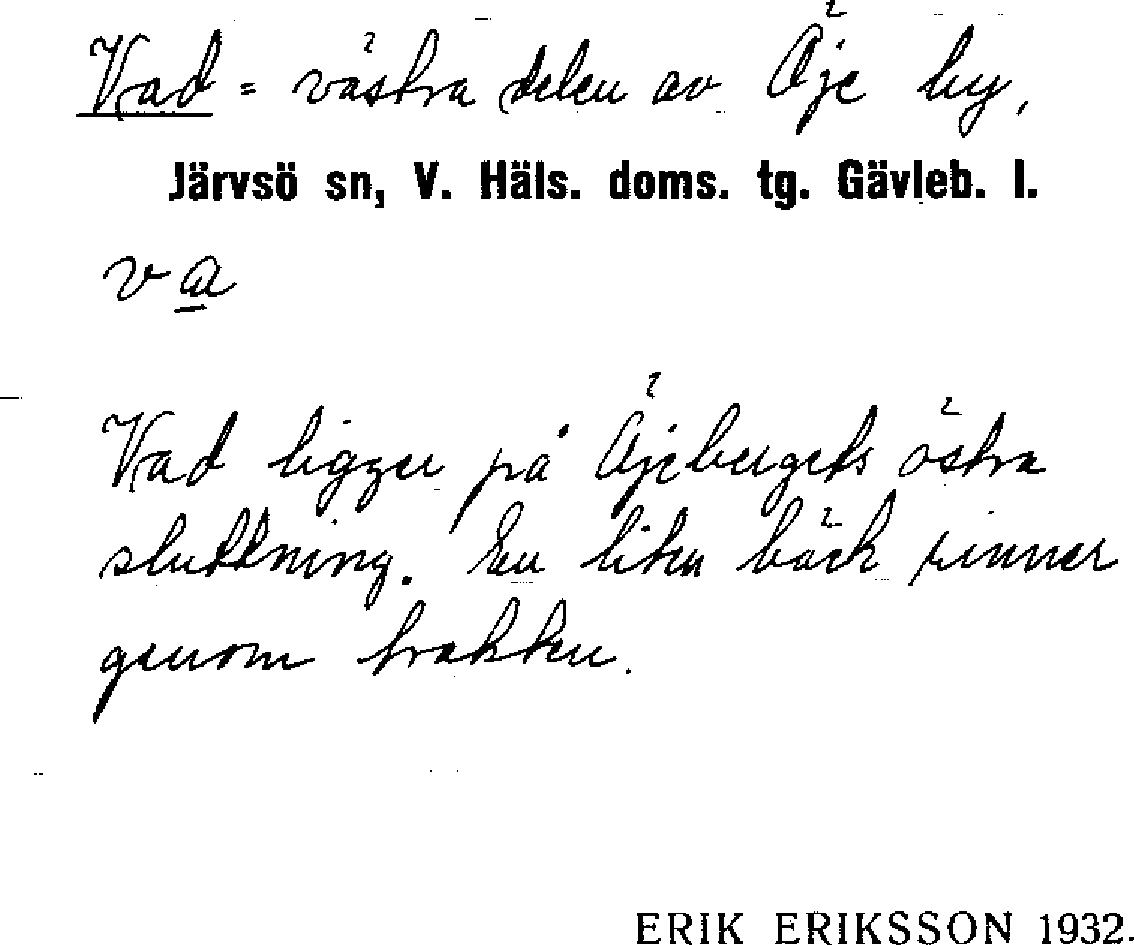 Vad = västra delen av Äje by,
Järvsö sn, V. Häls. doms. tg. Gävleb. l.
va
Vad ligger på Äjebergets östra
sluttning. En liten bäck rinner
genom trakten.
ERIK ERIKSSON 1932.